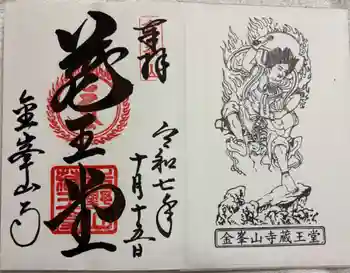 奉拝
令和七年
十月十五日
蔵王堂
金峯山寺
金峯山寺蔵王堂